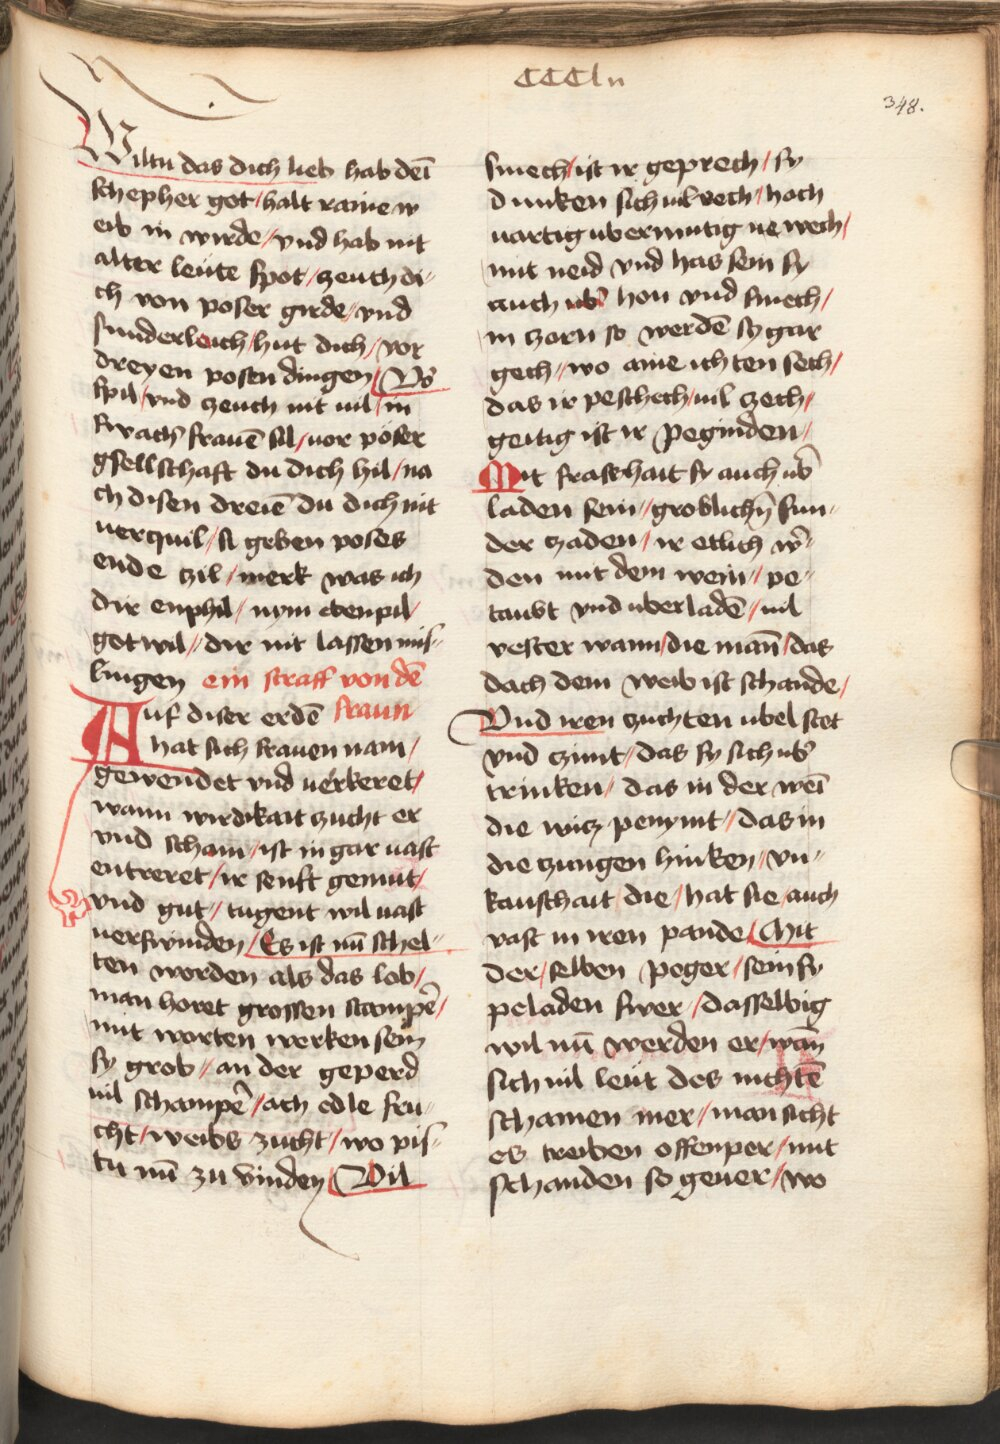 CCClii
348.
Wiltu das dich lieb hab deī
schepher got / halt raine w
eib in wirde // vnd hab nit
alter leüte spot / zeuch di-
ch von poser girde / vnd
sunderleich / hüt dich / vor
dreyen posen dingen / Vo᷑
spil / vnd zeuch nit vil / in
swach frauē sil / vor pöser
gsellschaft du dich hil / na
ch disen dreiē du dich nit
verquil / si geben poses
ende zil / merk was ich
dir enphil / nym eben pil /
got wil // dir nit lassen mis-
lingen ein straff von dē
fraun
Auf diser erdē
hat sich frauen nam /
gewendet vnd verkeret /
wann wirdikait zucht er
vnd scham / ist in gar vast
entreret / ir senft gemüt /
vnd gut / tugent wil vast
verswinden / Es ist nū schel-
ten worden als das lob /
man horet grossen stampē /
mit worten werken sein
sy grob // an der geperd
vil schampē / ach edle fru-
cht / weibs zucht / wo pis-
tu nū zu vinden / Vil
smech / ist ir geprech / sy
dunken sich vil rech / hoch
uartig ubermutig ue wech /
mit neid vnd has sein sy
auch vb᷑ hon vnd smech /
in zorn so werdē sy gar
gech / wo aine ichten sech /
das ir peschech / vil zech /
geitig ist ir peginden /
Mit frashait sy auch vb᷑
laden sein / groblichn̄ sun-
der zaden / ir etlich w᷑-
den mit dem wein / pe-
taubt vnd uberladē / vil
vester wann / die mān / das
doch dem weib ist schande /
Vnd iren zuchten ubel stet
vnd zimt / das sy sich vb᷑
trinken / das in der weī
die wicz penymt / das in
die zungen hinken / vn-
kauschait / die / hat sie / auch
vast in iren pande / Mit
der / selben peger / sein sy
peladen swer / dasselbig
wil nū werden er / wān
sich vil leüt des nichtē
schamen mer / man sicht
es treiben offenper / mit
schanden so geuer / wo